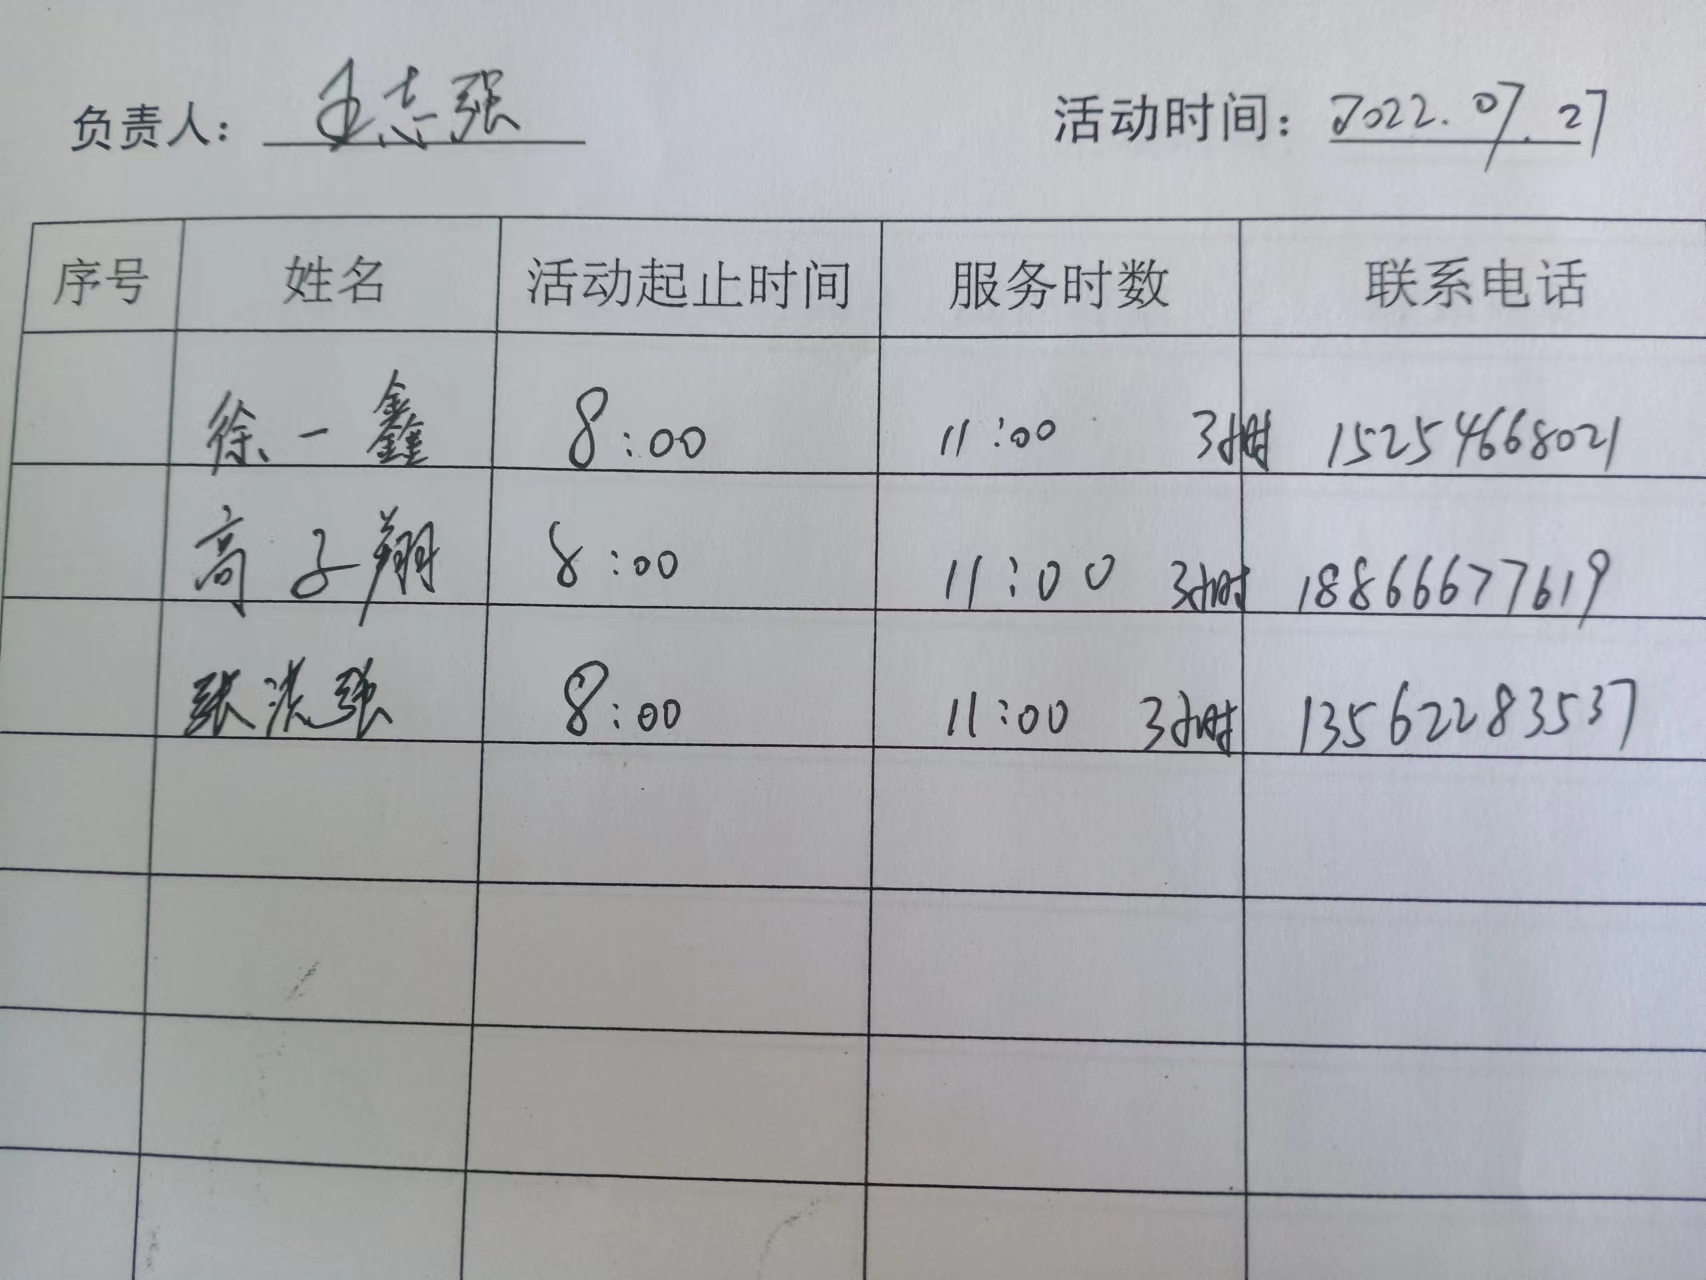 负责人：王志强 活动时间：2022.07.27
序号 姓名 活动起止时间 服务时数 联系电话
徐一鑫 8:00 11:00 3小时 15254668021
高子翔 8:00 11:00 3小时 18866677619
张洪强 8:00 11:00 3小时 13562283537